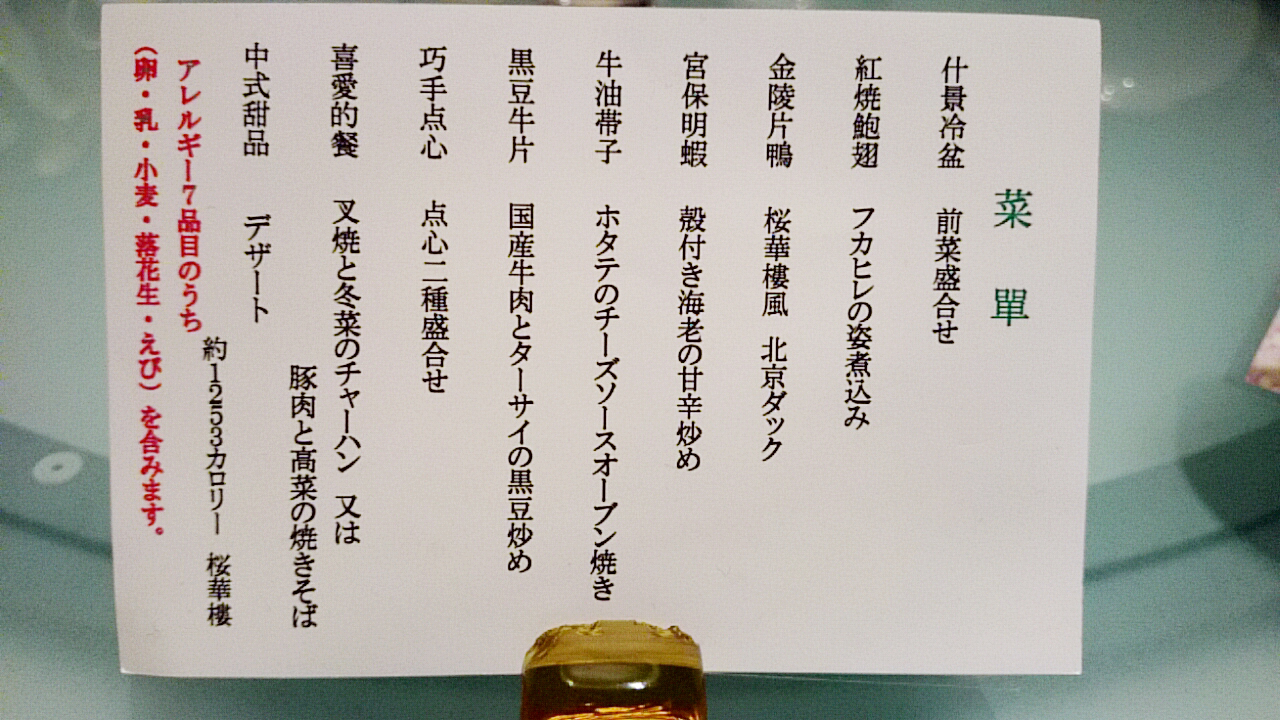 菜單
什景冷盆 前菜盛合せ
紅焼鮑翅 フカヒレの姿煮込み
金陵片鴨 桜華樓風 北京ダック
宮保明蝦 殻付き海老の甘辛炒め
牛油帯子 ホタテのチーズソースオーブン焼き
黒豆牛片 国産牛肉とターサイの黒豆炒め
巧手点心 点心二種盛合せ
喜愛的餐 叉焼と冬菜のチャーハン 又は
豚肉と高菜の焼きそば
中式甜品 デザート
約1253カロリー 桜華樓
アレルギー7品目のうち
(卵・乳・小麦・落花生・えび)を含みます。